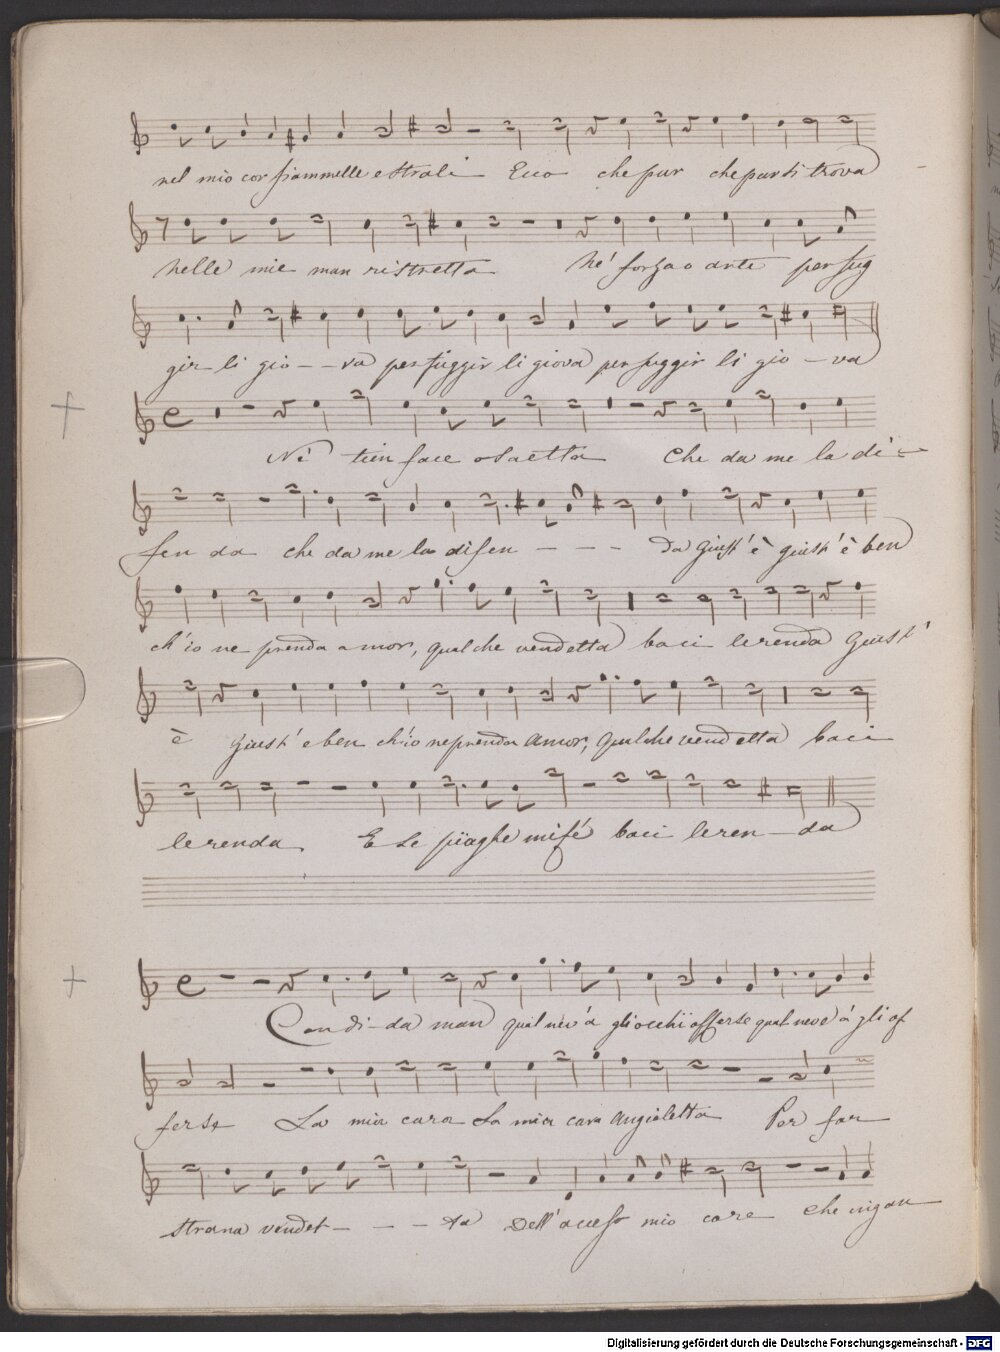 nel mio cor fiammelle e strali Ecco che pur che pur ti trova
Nelle mie man ristretta Ne' forza o arte per fug
gir li gio - - va per fuggir li giova per fuggir li gio - va
Ne tien face o saetta Che da me la di -
fen da che da me la difen - - - da Giust' è giust' è ben
ch'io ne prenda amor, qualche vendetta baci le renda Giust'
è Giust' e ben ch'io ne prenda amor, qualche vendetta baci
le renda E se piaghe mi fé baci le ren - da
Candi - da man qual nev' a gli occhi offerse qual neve à gli of
ferse La mia cara La mia cara Angioletta Per far
strana vendet - - - ta Dell' acceso mio core Che in gan
Digitalisierung gefördert durch die Deutsche Forschungsgemeinschaft - DFG